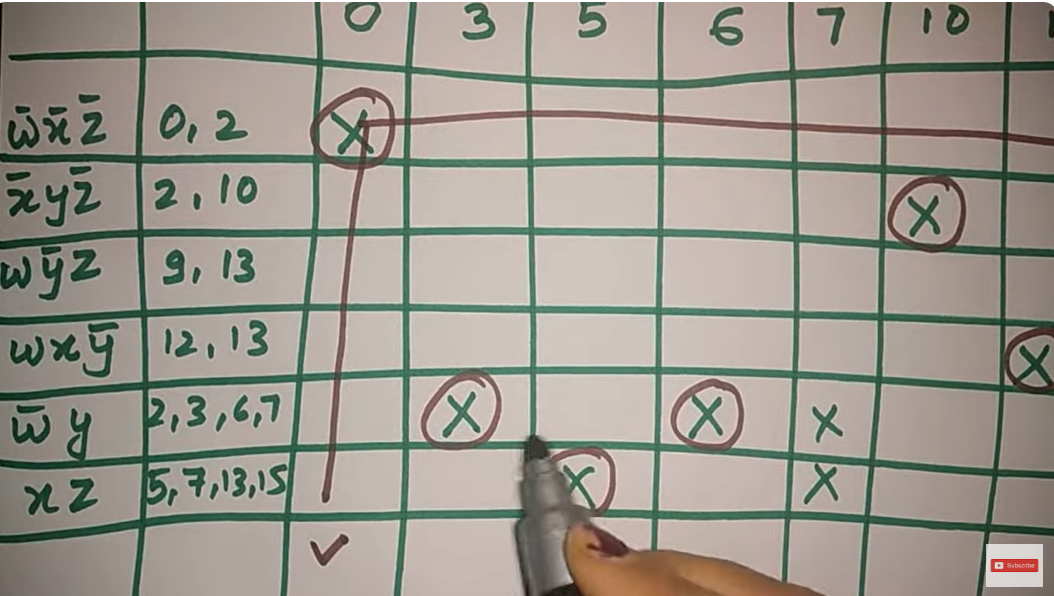 0 3 5 6 7 10
w̄ x̄ z̄ 0, 2 X
x̄ y z̄ 2, 10 X
w ȳ z 9, 13
w x ȳ 12, 13 X
w̄ y 2, 3, 6, 7 X X X
x z 5, 7, 13, 15 X X
✓
Subscribe